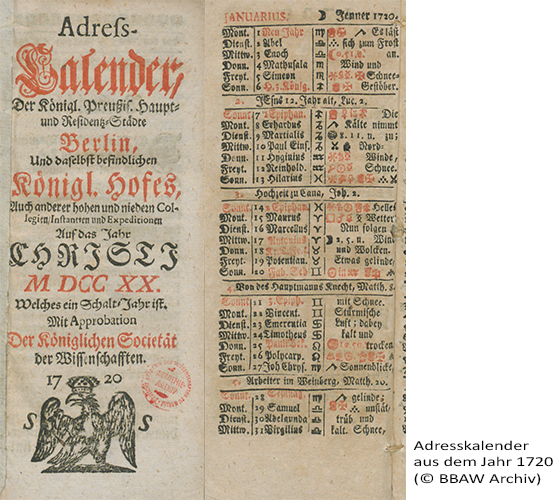 Adress-
Calender,
Der Königl. Preußis. Haupt-
und Residentz-Städte
Berlin,
Und daselbst befindlichen
Königl. Hofes,
Auch anderer hohen und niedern Col-
legien/Instantien und Expeditionen
Auf das Jahr
CHRISTI
M DCC XX.
Welches ein Schalt-Jahr ist.
Mit Approbation
Der Königlichen Societät
der Wissenschafften.
17 20
S S
JANUARIUS. Jenner 1720.
Mont. 1 Neu Jahr Es läst
Dienst. 2 Abel sich zum Frost
Mittw. 3 Enoch an.
Donn. 4 Methusala Wind und
Freyt. 5 Simeon Schnee-
Sonn. 6 H. 3. Könige Gestöber.
2. JEsus 12. Jahr alt, Luc. 2.
Sonnt. 7 1. Epiphan. Die
Mont. 8 Erhardus Kälte nimmt
Dienst. 9 Martialis 8. 11. v. zu;
Mittw. 10 Paul Einf. Nord-
Donn. 11 Hyginius Winde,
Freyt. 12 Reinhold. Schnee.
Sonn. 13 Hilarius
3. Hochzeit zu Cana, Joh. 2.
Sonnt. 14 2 Epiphan Helles
Mont. 15 Maurus Wetter
Dienst. 16 Marcellus Nun folgen
Mittw. 17 Antonius 2. 5. v. Win
Donn. 18 und Wolcken.
Freyt. 19 Potentian. Etwas gelinde,
Sonn. 20 Fab. Seb
4. Von des Hauptmanns Knecht, Matth. 8.
Sonnt 21 3. Epiph. mit Schnee.
Mont. 22 Vincent. Stürmische
Dienst. 23 Emerentia Luft; dabey
Mittw. 24 Timotheus kalt und
Donn. 25 trocken
Freyt. 26 Polycarp.
Sonn. 27 Joh Chrys. Sonnenblick.
5. Arbeiter im Weinberg, Matth. 20.
Sonnt. 28 gelinde;
Mont. 29 Samuel unstät,
Dienst. 30 Adelgunda trüb und
Mittw. 31 Virgilius kalt. Schnee,
Adresskalender
aus dem Jahr 1720
(© BBAW Archiv)